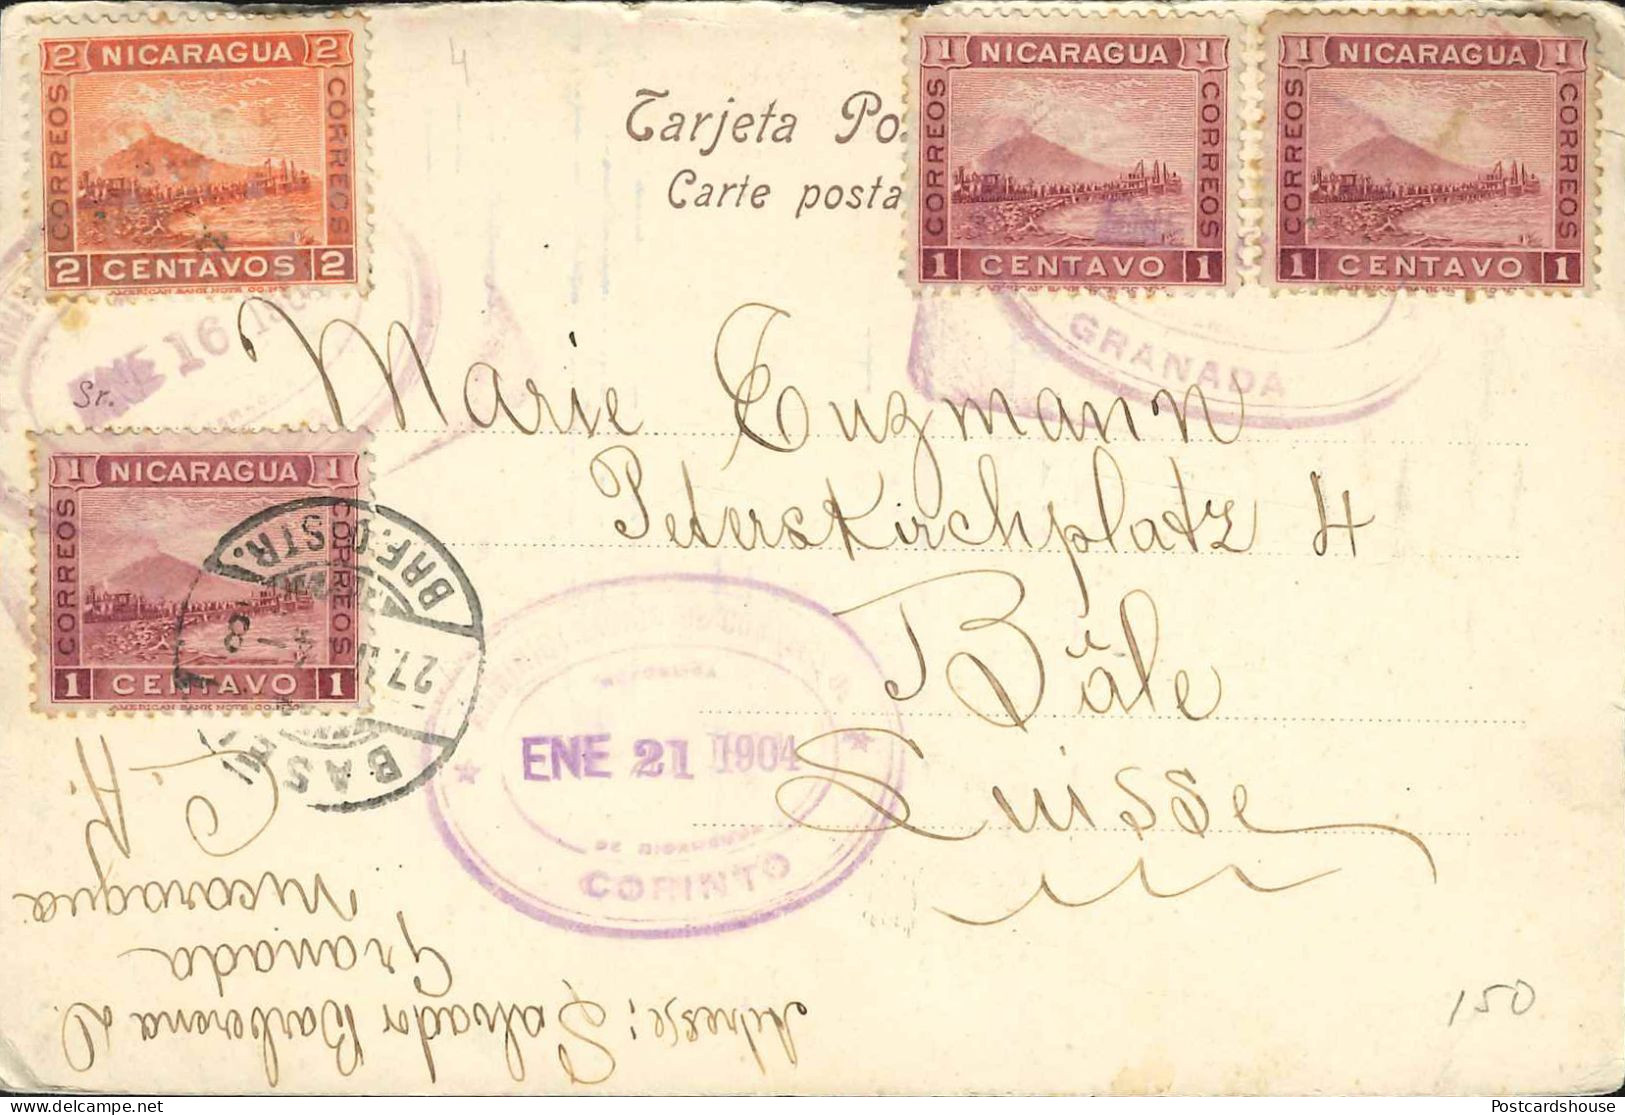 2 NICARAGUA 2
CORREOS
CORREOS
2 CENTAVOS 2
AMERICAN BANK NOTE CO. N.Y.
4
Tarjeta Po
Carte posta
1 NICARAGUA 1
CORREOS
CORREOS
1 CENTAVO 1
AMERICAN BANK NOTE CO. N.Y.
1 NICARAGUA 1
CORREOS
CORREOS
1 CENTAVO 1
AMERICAN BANK NOTE CO. N.Y.
ENE 16
GRANADA
Sr.
Marie Euzmann
Peterskirchplatz 4
Bâle
Suisse
1 NICARAGUA 1
CORREOS
CORREOS
1 CENTAVO 1
AMERICAN BANK NOTE CO. N.Y.
BRF. STR.
27.
8
BASEL
ENE 21 1904
DE NICARAGUA
CORINTO
Adresse: Salvador Barberena D.
Granada
Nicaragua
C. A.
150
Postcardshouse